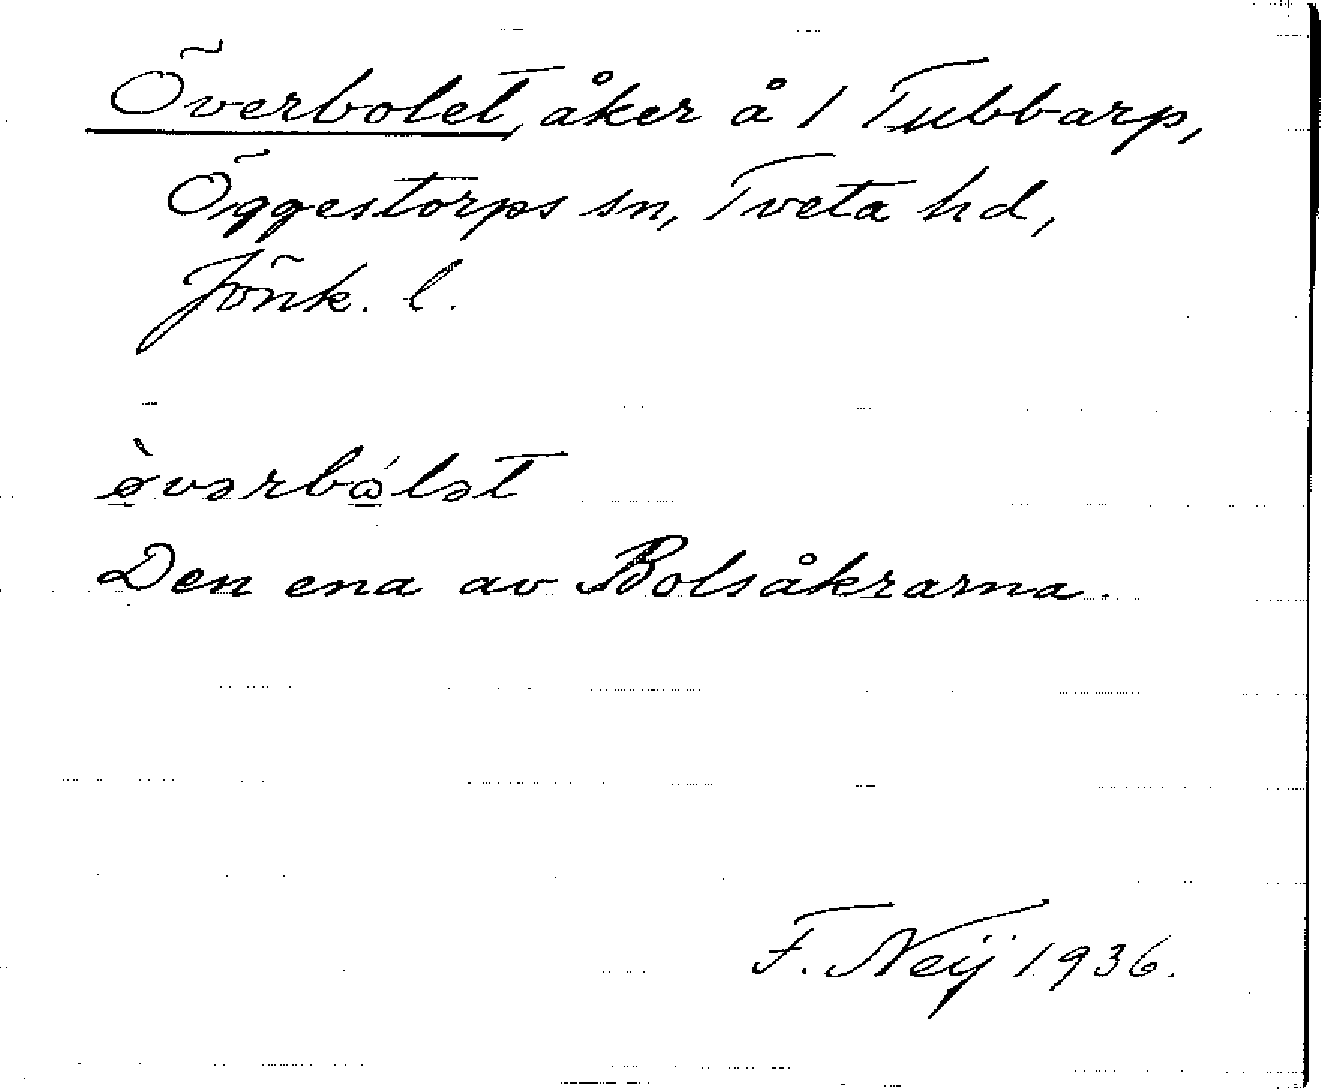 Överbolet, åker å 1 Tubbarp,
Öggestorps sn, Tveta hd,
Jönk. l.
ø̀vərbɷ́lət
Den ena av Bolsåkrarna.
F. Neij 1936.